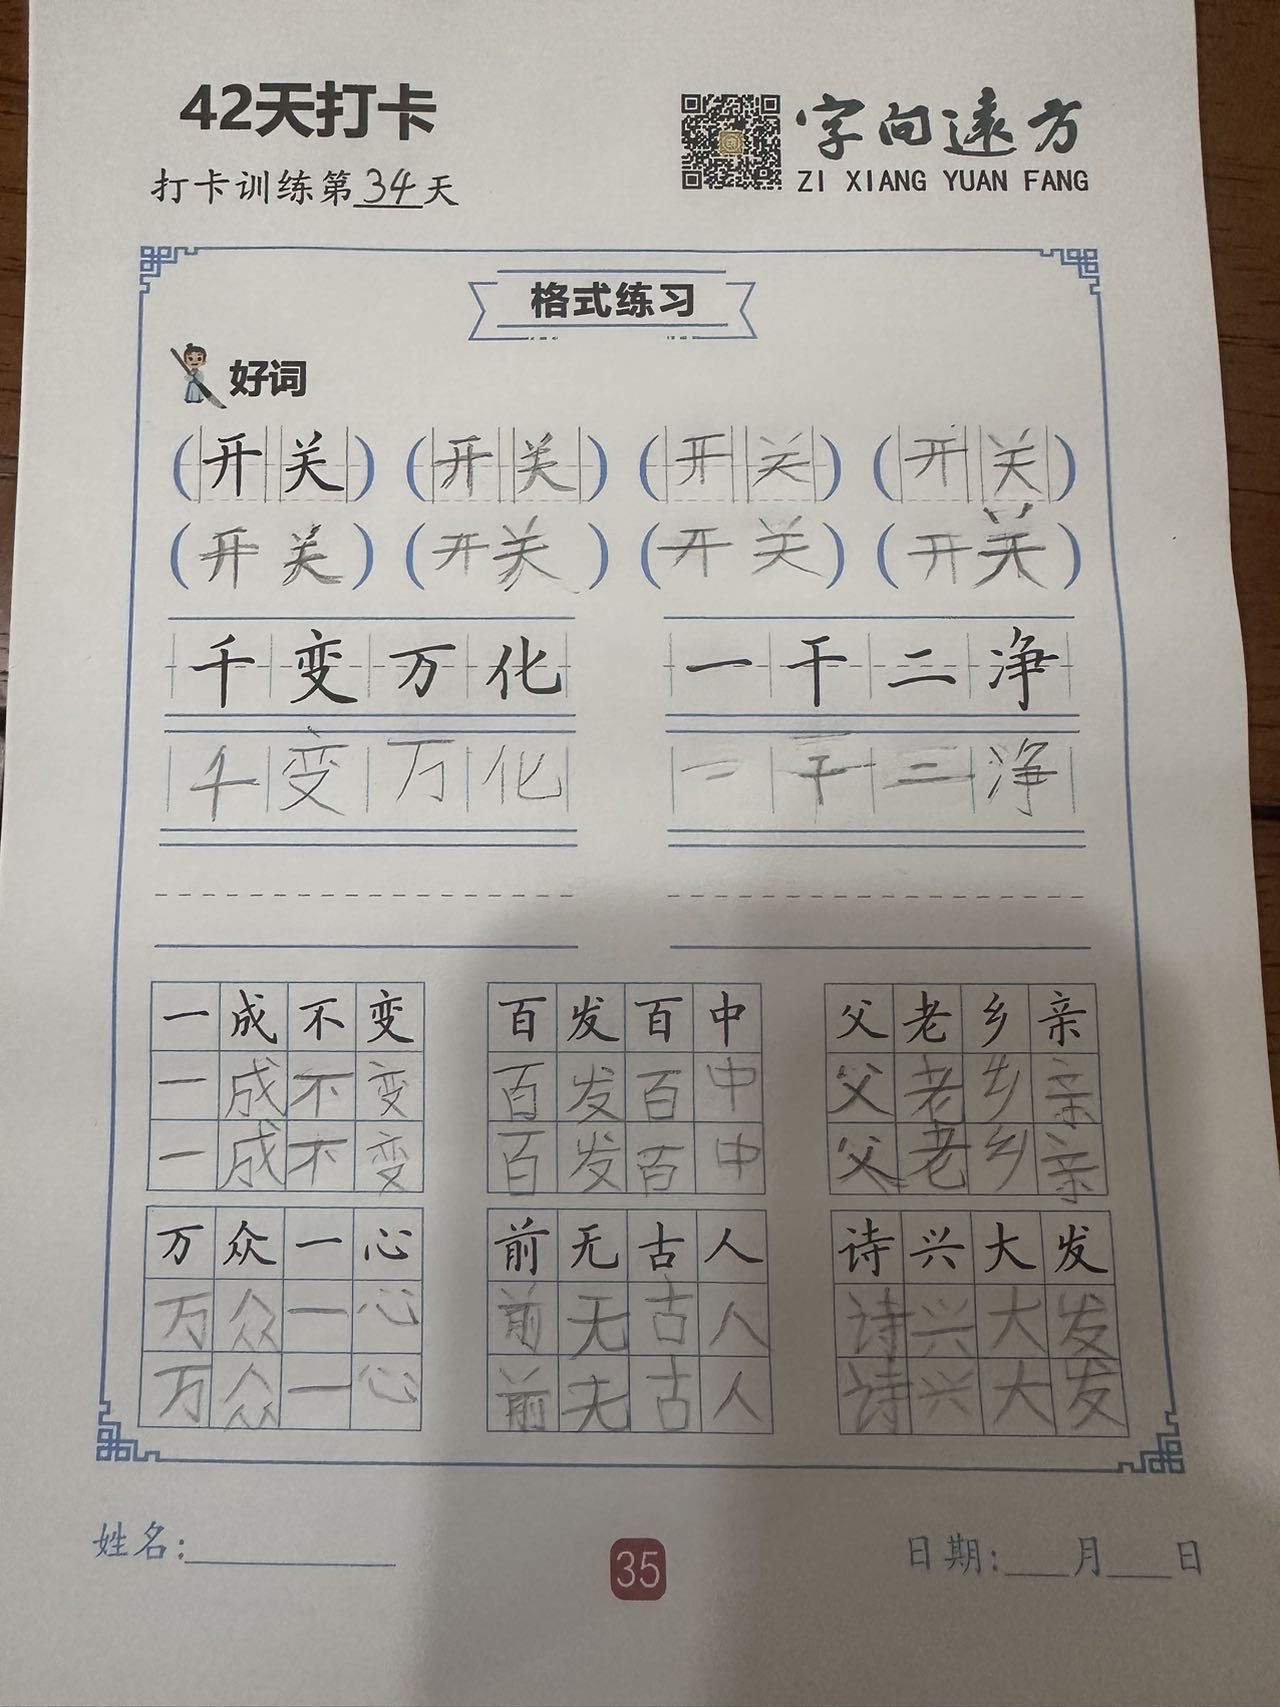 42天打卡
字向遠方
打卡训练第34天
ZI XIANG YUAN FANG
格式练习
好词
(开关) (开关) (开关) (开关)
(开关) (开关) (开关) (开关)
千变万化 一干二净
千变万化 一干二净
一成不变 百发百中 父老乡亲
一成不变 百发百中 父老乡亲
一成不变 百发百中 父老乡亲
万众一心 前无古人 诗兴大发
万众一心 前无古人 诗兴大发
万众一心 前无古人 诗兴大发
姓名:______ 35 日期:___月___日